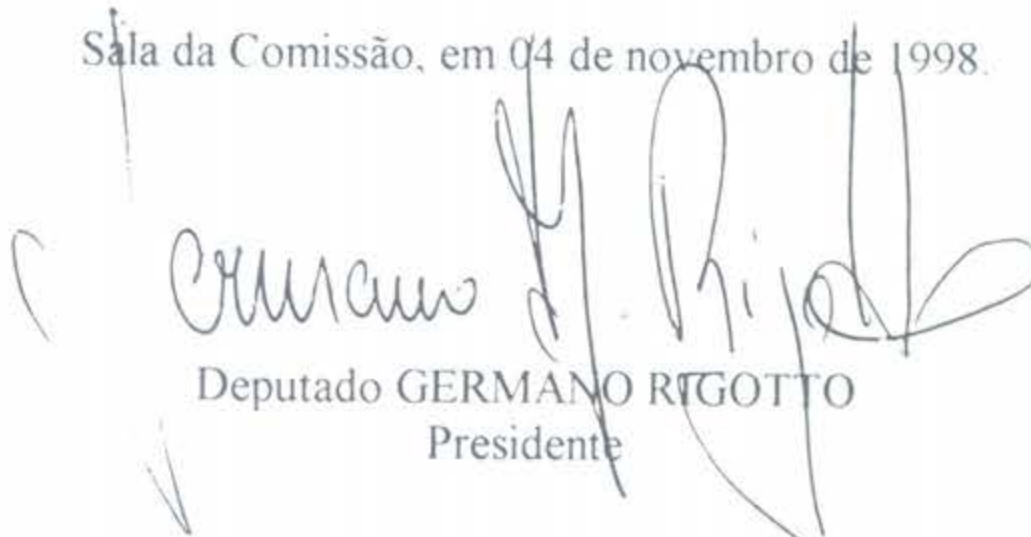 Sala da Comissão, em 04 de novembro de 1998.
Germano H. Rigotto
Deputado GERMANO RIGOTTO
Presidente